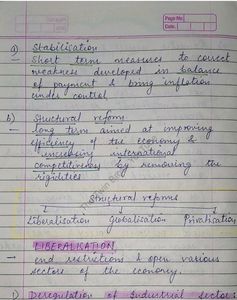 Page No.
Date
a) Stabilisation
Short term measures to correct
weakness developed in balance
of payment & bring inflation
under control
b) Structural reforms
- long term aimed at improving
efficiency of the economy &
increasing international
competitiveness by removing the
rigidities
Structural reforms
Liberalisation Globalisation Privatisation
LIBERALISATION
- end restrictions & open various
sectors of the economy.
1) Deregulation of Industrial sector: